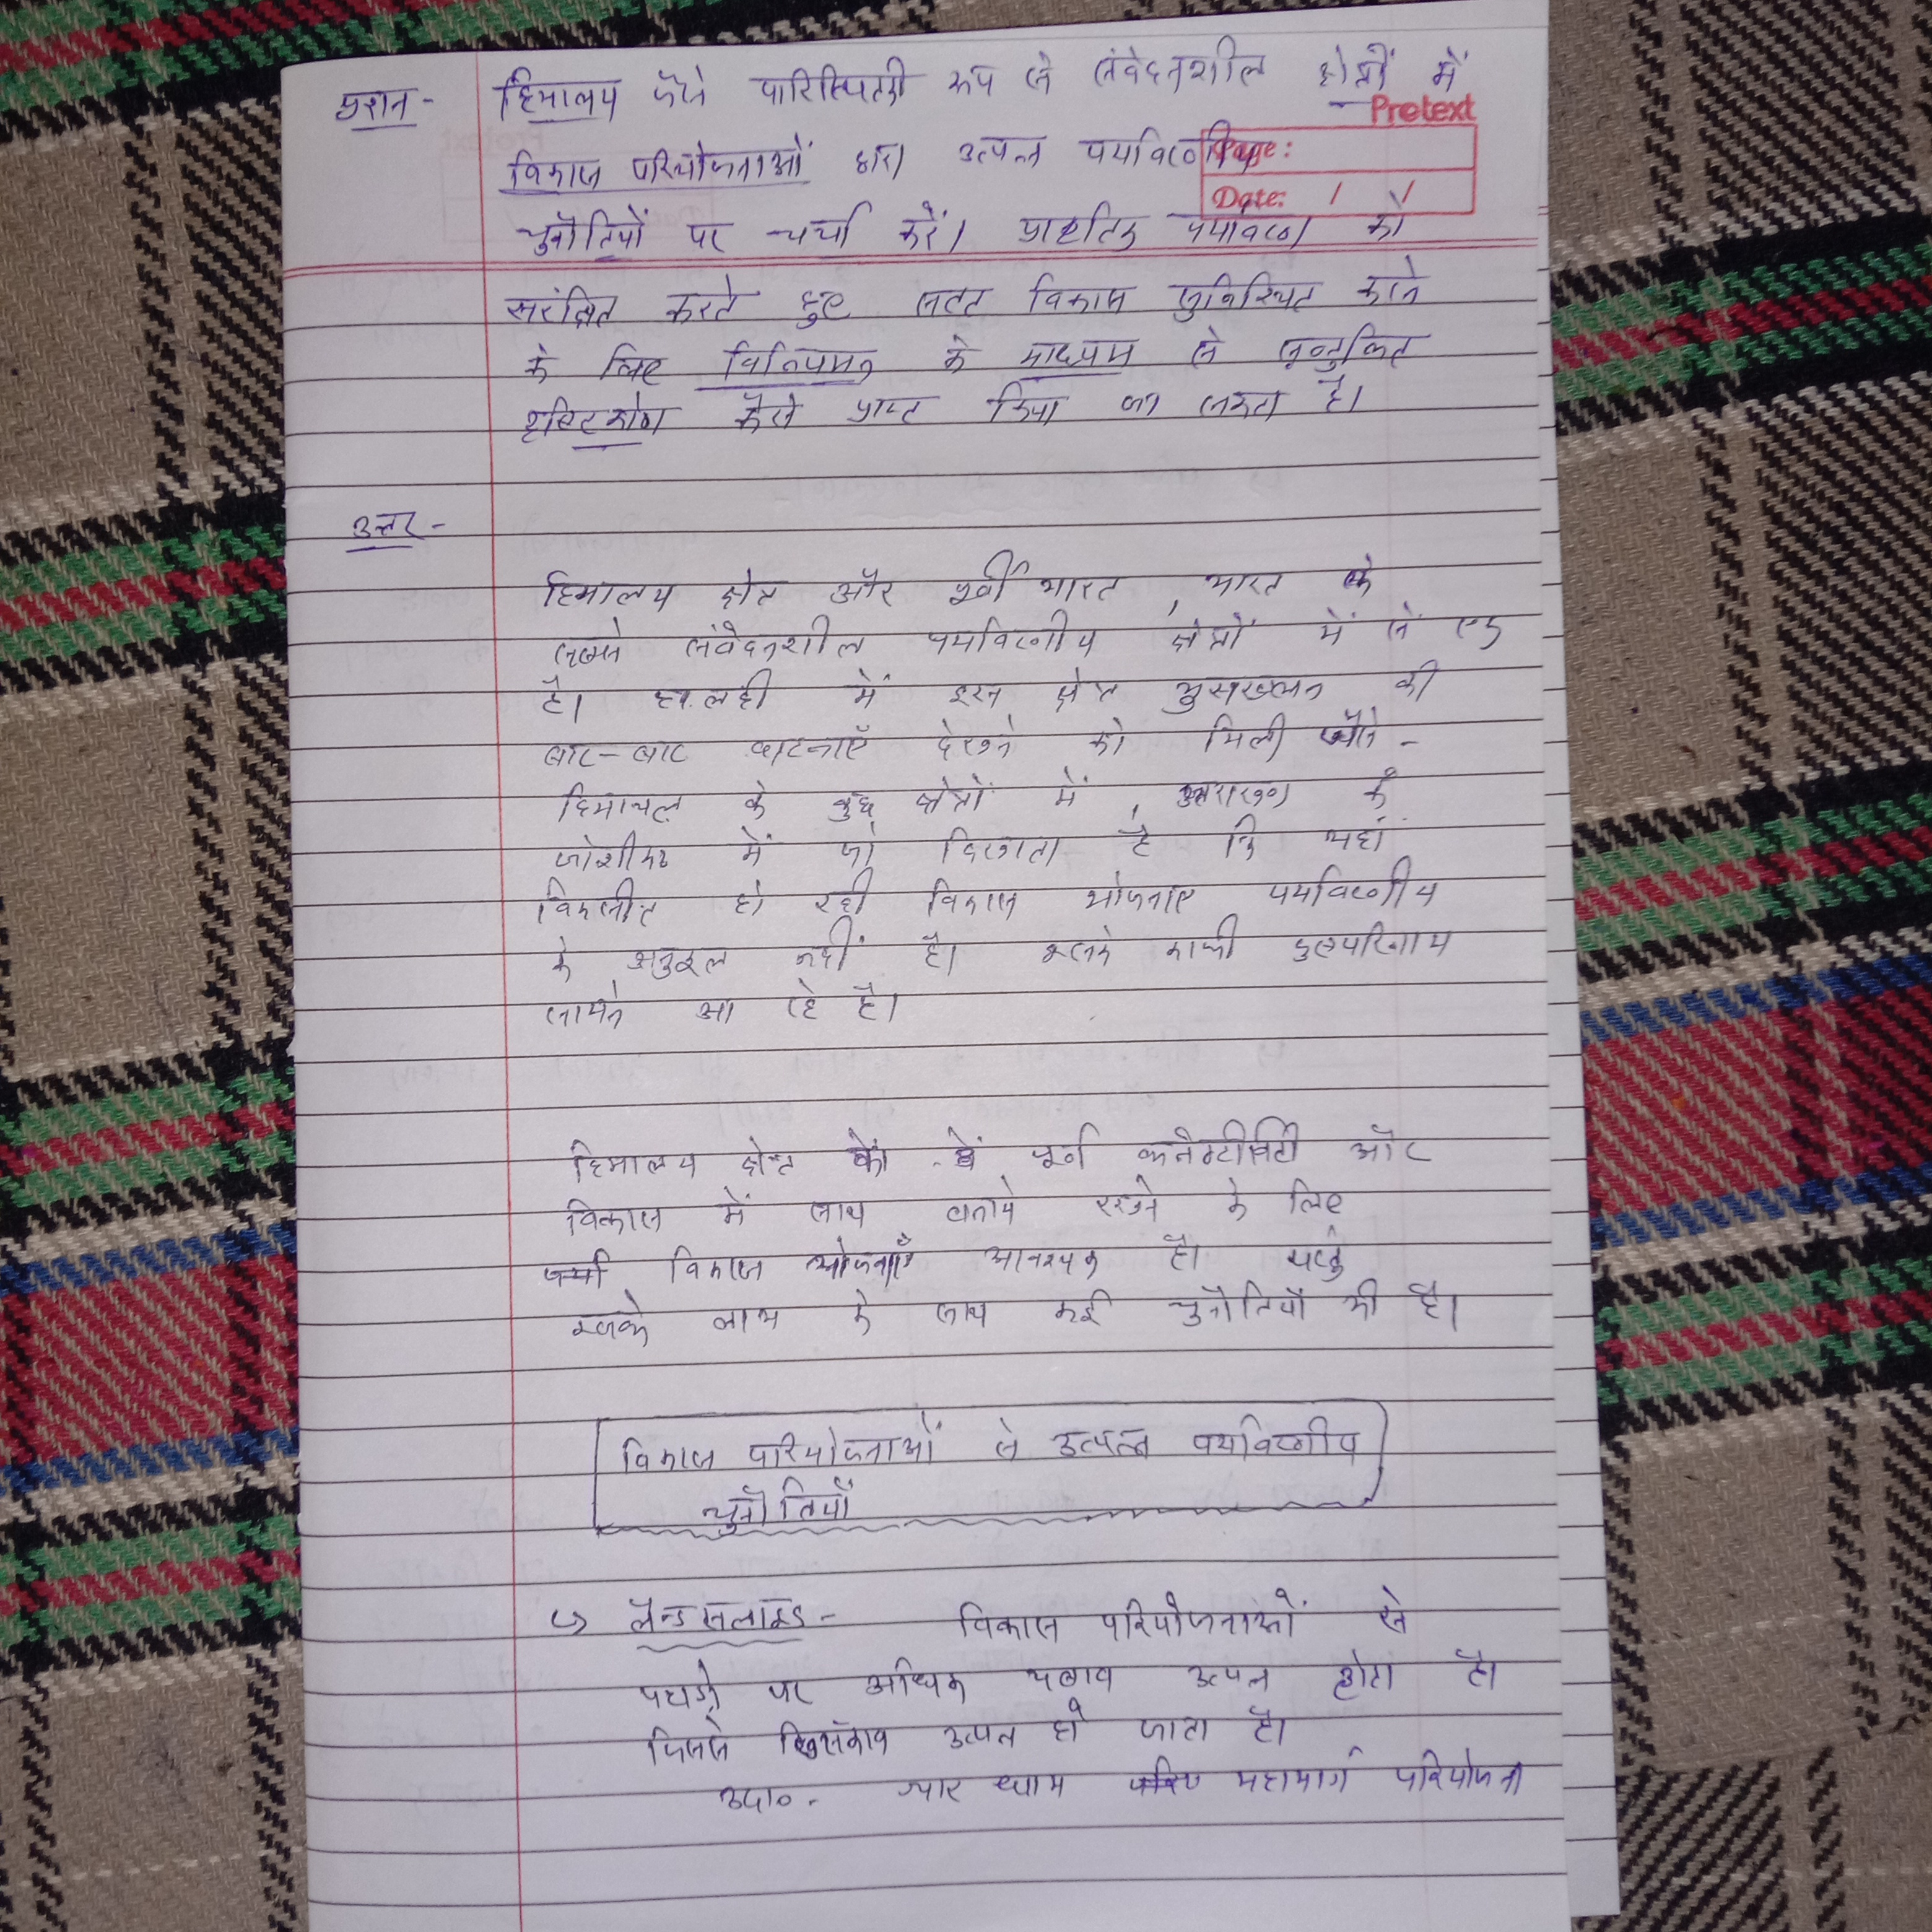 प्रशन - हिमालय जैसे पारिस्थितिकी रूप से संवेदनशील क्षेत्रों में
Pretext
विकास परियोजनाओं द्वारा उत्पन्न पर्यावरणीय
Page:
Date: / /
चुनौतियों पर चर्चा करें। प्राकृतिक पर्यावरण को
संरक्षित करते हुए सतत विकास सुनिश्चित करने
के लिए विनियमन के माध्यम से सन्तुलित
दृष्टिकोण कैसे प्राप्त किया जा सकता है।
उत्तर -
हिमालय क्षेत्र और पूर्वी भारत, भारत के
सबसे संवेदनशील पर्यावरणीय क्षेत्रों में से एक
है। हालही में इस क्षेत्र भुसख्लन की
बार-बार घटनाएँ देखने को मिली जैसे -
हिमाचल के कुछ क्षेत्रों में, उत्तराखण्ड के
जोशीमठ में जो दिखाता है कि यहां
विकसीत हो रही विकास योजनाए पर्यावरणीय
के अनुकूल नहीं है। इसके काफी दुष्परिणाम
सामने आ रहे है।
हिमालय क्षेत्र को पूर्ण कनेक्टीविटी और
विकास में साथ बनाये रखने के लिए
सभी विकास योजनाएँ आवश्यक है। परन्तु
इसके लाभ के साथ कई चुनौतियाँ भी है।
विकास परियोजनाओं से उत्पन्न पर्यावरणीय
चुनौतियाँ
↪ लैन्डसलाइड - विकास परियोजनाओं से
पहाड़ो पर अधिक दबाव उत्पन्न होता है।
जिससे खिसकाव उत्पन हो जाता है।
उदा०- चार धाम महामार्ग परियोजना